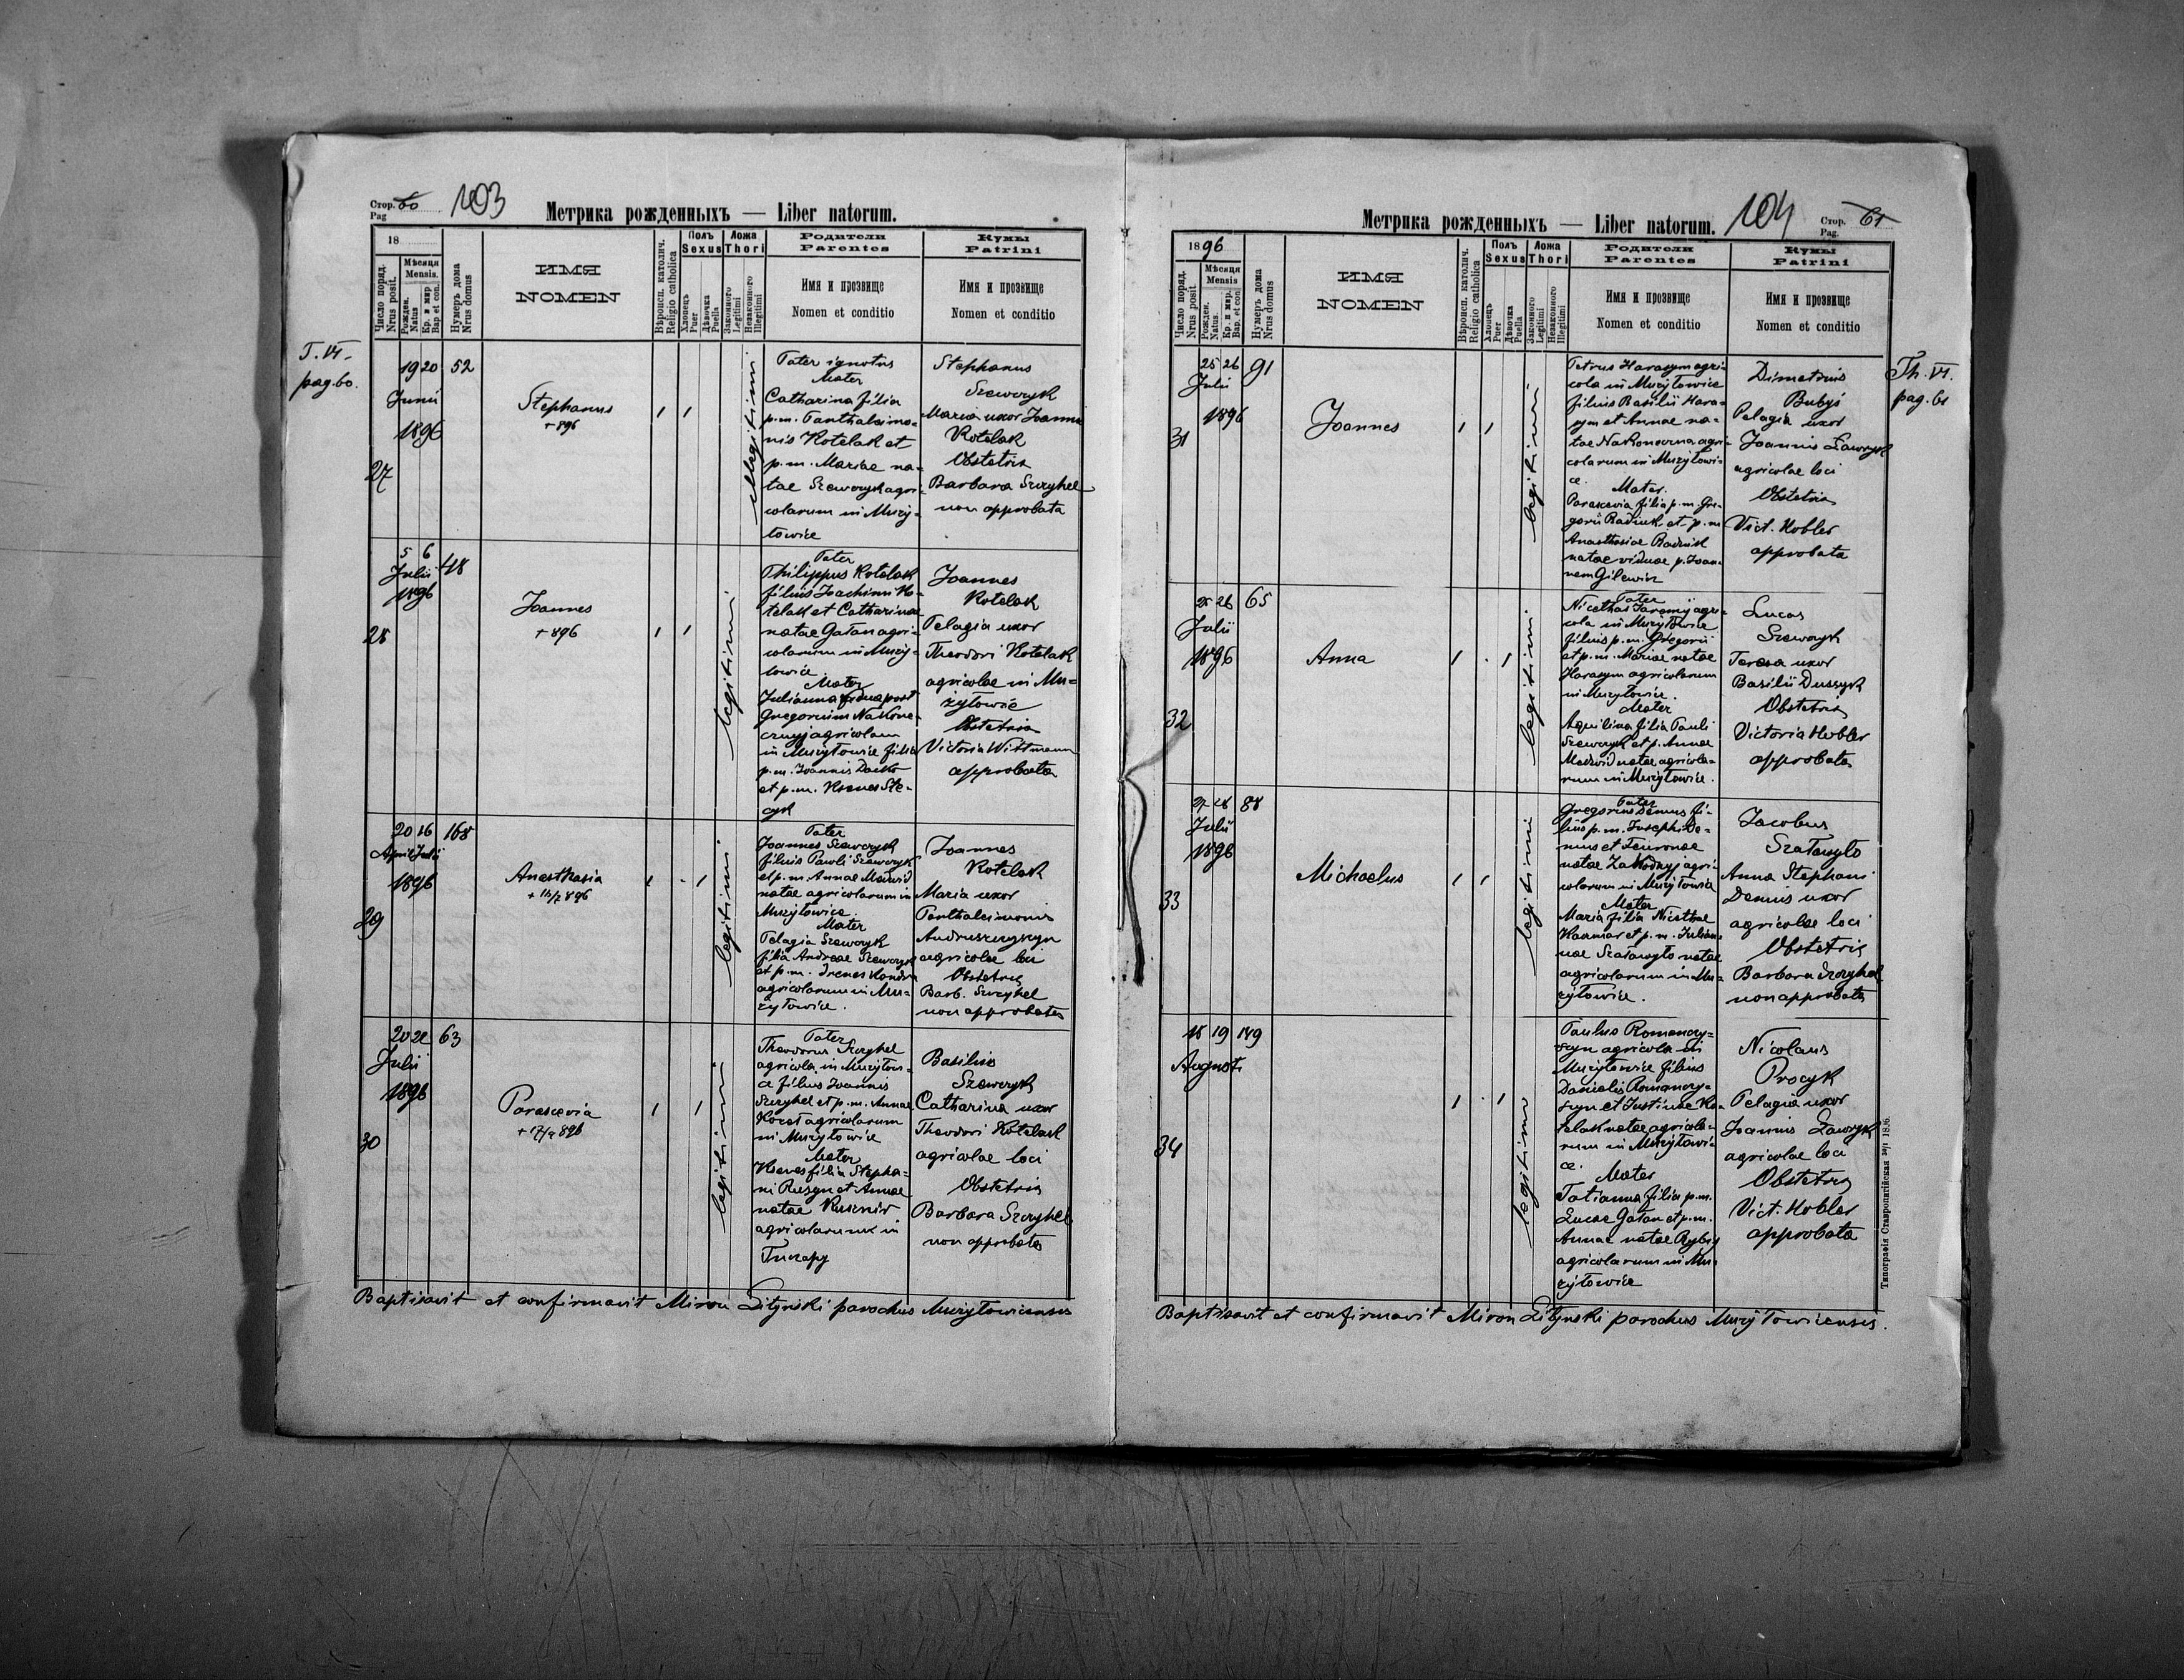 Стор. 60 103
Pag
Метрика рожденныхъ — Liber natorum.
18
Число поряд. Nrus posit.
Мѣсяця Mensis.
Рожден. Natus
Кр. и мѵр. Bap. et con.
Нумеръ дома Nrus domus
ИМЯ
NOMEN
Вѣроисп. католич. Religio catholica
Полъ Sexus
Хлопецъ Puer
Дѣвочка Puella
Ложа Thori
Законного Legitimi
Незаконного Illegitimi
Родители
Parentes
Имя и прозвище
Nomen et conditio
Кумы
Patrini
Имя и прозвище
Nomen et conditio
T. VI.
pag. 60.
27
19 20 52
Junii
1896
Stephanus
+ 896
illegitimi
Pater ignotus
Mater
Catharina filia
p.m. Panthaleimo-
nis Kotelak et
p.m. Mariae na-
tae Szewczyk agri-
colarum in Muży-
łowice
Stephanus
Szewczyk
Maria uxor Joannis
Kotelak
Obstetrix
Barbara Szczyhel
non approbata
28
5 6 48
Julii
1896
Joannes
+ 896
legitimi
Pater
Philippus Kotelak
filius Joachimi Ko-
telak et Catharinae
natae Gałan agri-
colarum in Muży-
łowice
Mater
Julianna vidua post
Gregorium Nakone-
cznyj agricolam
in Mużyłowice filia
p.m. Joannis Dacko
et p.m. Ksenes Ste-
cyk
Joannes
Kotelak
Pelagia uxor
Theodori Kotelak
agricolae in Mu-
żyłowice
Obstetrix
Victoria Wittmann
approbata
29
20 16 168
April Julii
1896
Anasthasia
legitimi
Pater
Joannes Szewczyk
filius Pauli Szewczyk
et p.m. Annae Medwid
natae agricolarum in
Mużyłowice.
Mater
Pelagia Szewczyk
filia Andreae Szewczyk
et p.m. Irenes
agricolarum in Mu-
żyłowice.
Joannes
Kotelak
Maria uxor
Panthaleimonis
Andruszczyszyn
agricolae loci
Obstetrix
Barb. Szczyhel
non approbata
30
63
Julii
1896
Parascevia
legitimi
Pater
Theodorus Szczyhel
agricola in Mużyłowi-
ce filius Joannis
Szczyhel et p.m. Annae
agricolarum
in Mużyłowice
Mater
Ksenes filia Stepha-
ni Rusyn et Annae
natae Kusznir
agricolarum in
Basilius
Szewczyk
Catharina uxor
Theodori Kotelak
agricolae loci
Obstetrix
Barbara Szczyhel
non approbata
Baptisavit et confirmavit Miron Lityński parochus Mużyłowicensis
Метрика рожденныхъ — Liber natorum. 104 Стор. 61
Pag.
1896
Число поряд. Nrus posit.
Мѣсяця Mensis
Рожден. Natus.
Кр. и мѵр. Bap. et con.
Нумеръ дома Nrus domus
ИМЯ
NOMEN
Вѣроисп. католич. Religio catholica
Полъ Sexus
Хлопецъ Puer
Дѣвочка Puella
Ложа Thori
Законного Legitimi
Незаконного Illegitimi
Родители
Parentes
Имя и прозвище
Nomen et conditio
Кумы
Patrini
Имя и прозвище
Nomen et conditio
Th. VI.
pag. 61
31
25 26 91
Julii
1896
Joannes
legitimi
Petrus Harasym agri-
cola in Mużyłowice
filius Basilii Hara-
sym et Annae na-
tae Nakoneczna agri-
colarum in Mużyłowi-
ce.
Mater.
Parascevia filia p.m. Gre-
gorii Raduk et p.m.
Anasthasiae
natae vidua p. Joan-
nem Gilewicz
Dimetrius
Bubyś
Pelagia uxor
Joannis Ławryk
agricolae loci
Obstetrix
Vict. Hobler
approbata
32
25 26 65
Julii
1896
Anna
legitimi.
Pater
Nicethas Jaremij agri-
cola in Mużyłowice
filius p.m. Gregorii
et p.m. Mariae natae
Harasym agricolarum
in Mużyłowice.
Mater
Aquilina filia Pauli
Szewczyk et p. Annae
Medwid natae agricola-
rum in Mużyłowice.
Lucas
Szewczyk
Teresa uxor
Basilii Dussyk
Obstetrix
Victoria Hobler
approbata
33
27 28 88
Julii
1896
Michaelus
legitimi
Pater
Gregorius Demus fi-
lius p.m. Josephi De-
mus et Feuronae
natae Zakidnyj agri-
colarum in Mużyłowice
Mater
Maria filia Nicethae
et p.m. Julian-
nae Szaławyło natae
agricolarum in Mu-
żyłowice.
Jacobus
Szaławyło
Anna Stephani
Demus uxor
agricolae loci
Obstetrix
Barbara Szczyhel
non approbata
34
18 19 149
Augusti
legitimi
Paulus Romanczy-
szyn agricola in
Mużyłowice filius
Danielis Romanczy-
szyn et Justinae Ko-
telak natae agricola-
rum in Mużyłowi-
ce.
Mater
Tatianna filia p.m.
Lucae Gałan et p.m.
Annae natae
agricolarum in Mu-
żyłowice
Nicolaus
Procyk
Pelagia uxor
Joannis Ławryk
agricolae loci
Obstetrix
Vict. Hobler
approbata
Типографія Ставропигійская 1896.
Baptisavit et confirmavit Miron Lityński parochus Mużyłowicensis.